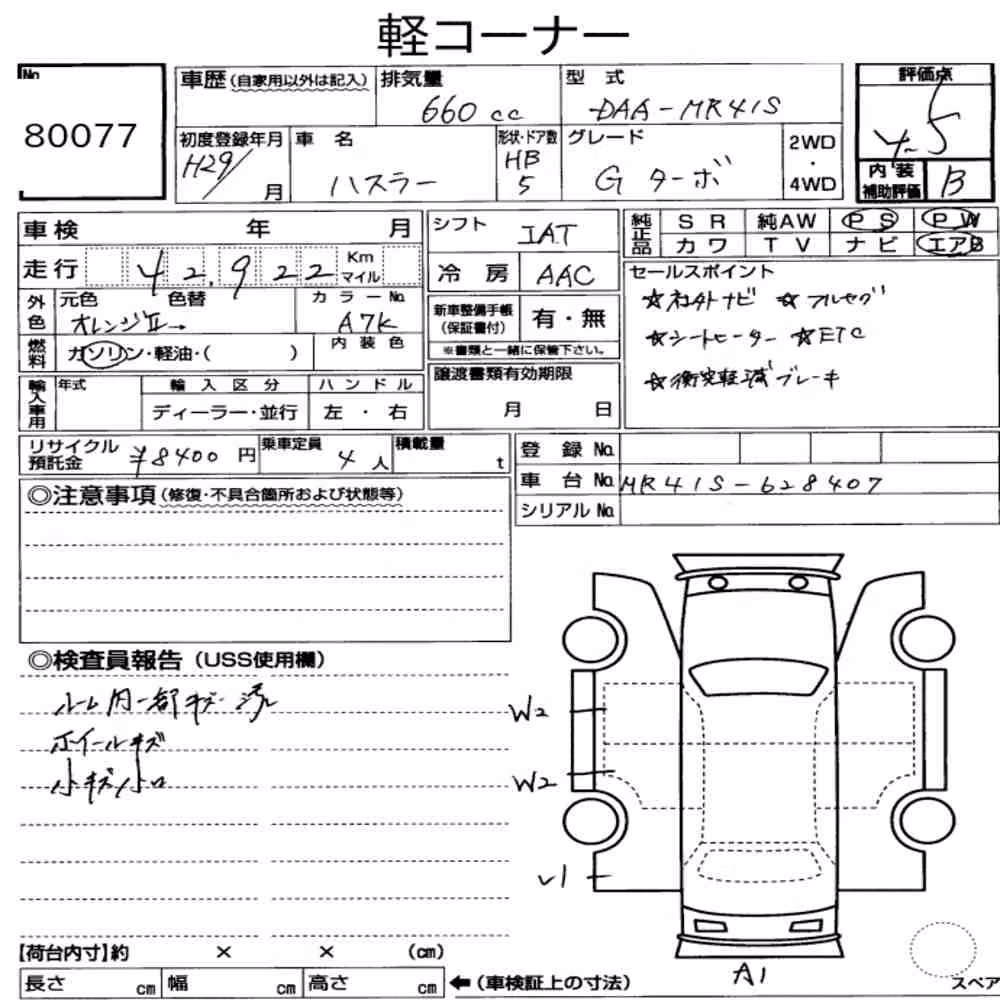 軽コーナー
No
80077
車歴 (自家用以外は記入)
排気量
660 cc
型 式
DAA-MR41S
評価点
4.5
初度登録年月
H29/
月
車 名
ハスラー
形状・ドア数
HB
5
グレード
G ターボ
2WD
・
4WD
内 装
補助評価
B
車検 年 月
走行 42,922 Km
マイル
外色
元色 色替
オレンジII→
カラーNo.
A7K
燃料
ガソリン・軽油・( )
内 装 色
輸入車用
年式
輸 入 区 分
ディーラー・並行
ハ ン ド ル
左 ・ 右
シフト IAT
冷 房 AAC
新車整備手帳
(保証書付)
有・無
※書類と一緒に保管下さい。
譲渡書類有効期限
月 日
純正品
S R 純AW P S P W
カワ T V ナ ビ エアB
セールスポイント
☆社外ナビ ☆フルセグ
☆シートヒーター ☆ETC
☆衝突軽減ブレーキ
リサイクル
預託金
¥8400 円
乗車定員
4 人
積載量
t
登 録 No.
車 台 No. MR41S-628407
シリアル No.
◎注意事項 (修復・不具合箇所および状態等)
◎検査員報告 (USS使用欄)
ルーム内一部キズ
ホイールキズ
小キズ小凹
W2
W2
A1
【荷台内寸】約 × × (cm)
長さ cm 幅 cm 高さ cm
←(車検証上の寸法)
スペア